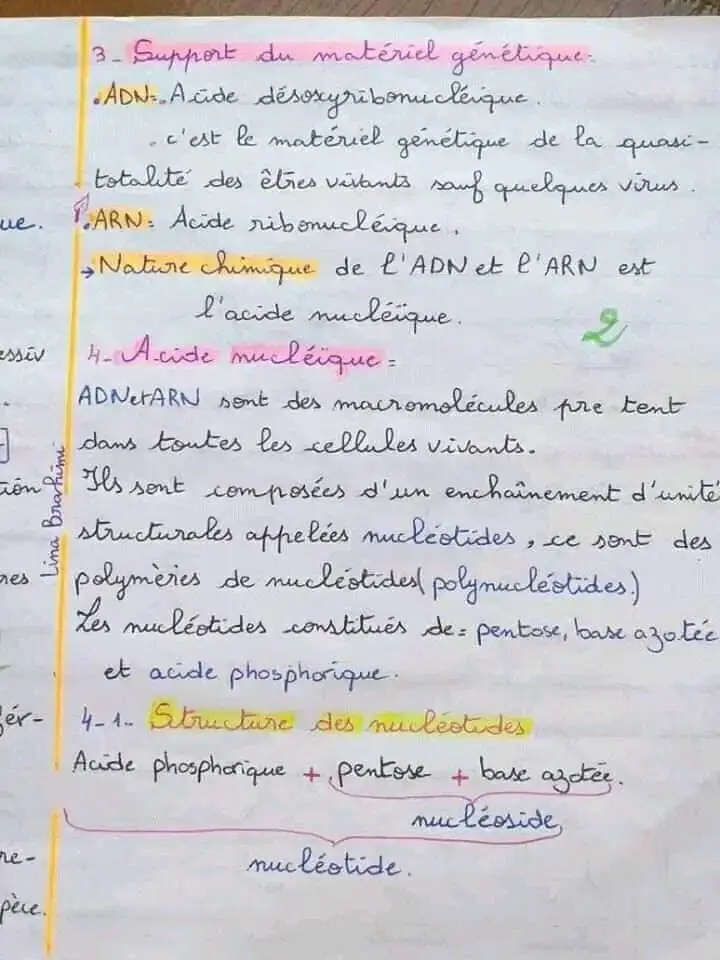 3- Support du matériel génétique:
• ADN:. Acide désoxyribonucléique.
. c'est le matériel génétique de la quasi-
totalité des êtres vivants sauf quelques virus.
ue.
• ARN: Acide ribonucléique.
→ Nature chimique de l'ADN et l'ARN est
l'acide nucléique.
2
essiv
4- Acide nucléique =
ADN et ARN sont des macromolécules pre tent
dans toutes les cellules vivants.
Lina Brahimi
tion
Ils sont composées d'un enchaînement d'unité
structurales appelées nucléotides, ce sont des
res
polymères de nucléotides (polynucléotides.)
Les nucléotides constitués de= pentose, base azotée
et acide phosphorique.
ér-
4-1- Structure des nucléotides
Acide phosphorique + pentose + base azotée.
nucléoside
re-
nucléotide.
pèce.